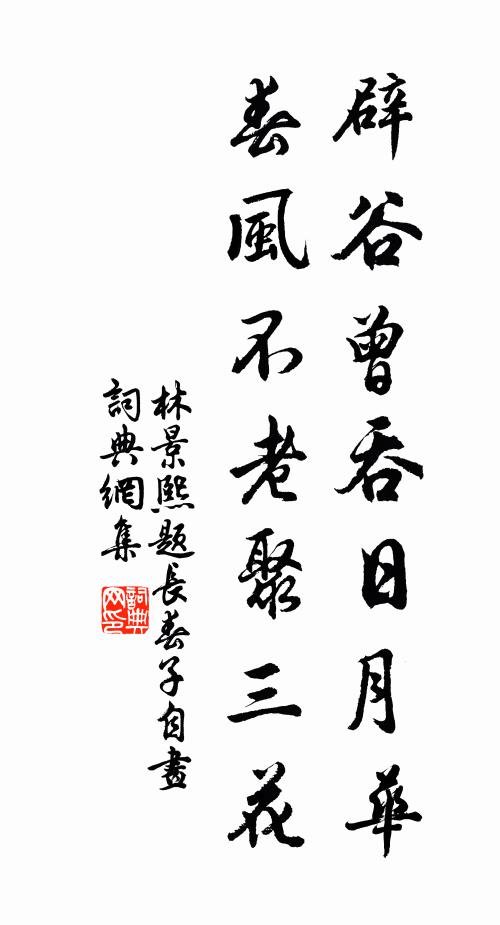 辟谷曾吞日月華
春風不老聚三花
林景熙題長春子自畫
詞典網集
詞典网印